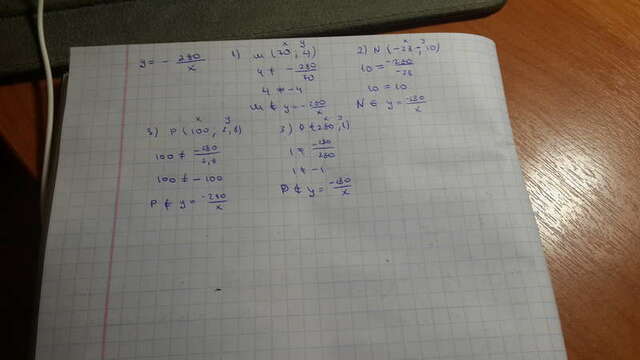 y = - 280/x
1) M (70, 4)
4 ≠ - 280/70
4 ≠ -4
M ∉ y = -280/x
2) N (-28, 10)
10 = -280/-28
10 = 10
N ∈ y = -280/x
3) P (100, 2,8)
100 ≠ -280/2,8
100 ≠ -100
P ∉ y = -280/x
1 ≠ -280/280
1 ≠ -1
P ∉ y = -280/x